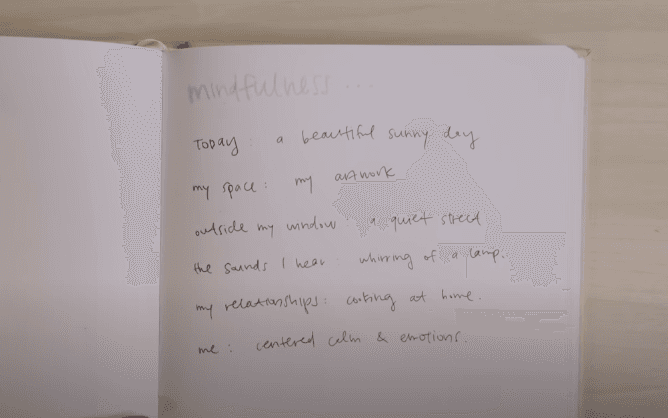 mindfulness ...
Today: a beautiful sunny day
my space: my artwork
outside my window a quiet street
the sounds I hear: whirring of a lamp.
my relationships: cooking at home.
me: centered calm & emotions.